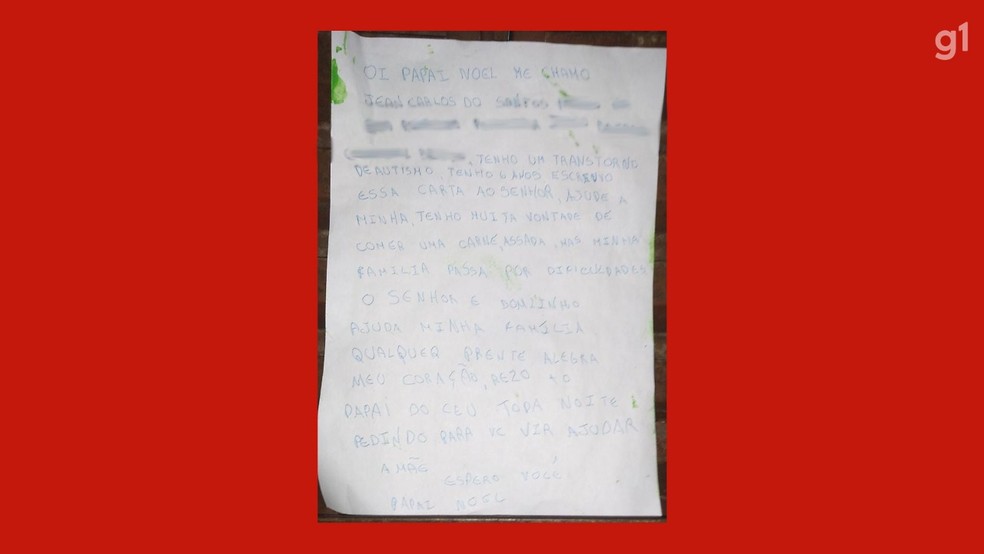 g1
OI PAPAI NOEL ME CHAMO
JEAN CARLOS DO SANTOS
, TENHO UM TRANSTORNO
DE AUTISMO, TENHO 6 ANOS ESCREVO
ESSA CARTA AO SENHOR, AJUDE A
MINHA, TENHO MUITA VONTADE DE
COMER UMA CARNE, ASSADA, MAS MINHA
FAMILIA PASSA POR DIFICULDADES
O SENHOR E BOMZINHO
AJUDA MINHA FAMÍLIA
QUALQUER PRENTE ALEGRA
MEU CORAÇÃO, REZO
PAPAI DO CEU TODA NOITE
PEDINDO PARA VC VIR AJUDAR
A MÃE
ESPERO VOCÊ
PAPAI NOEL